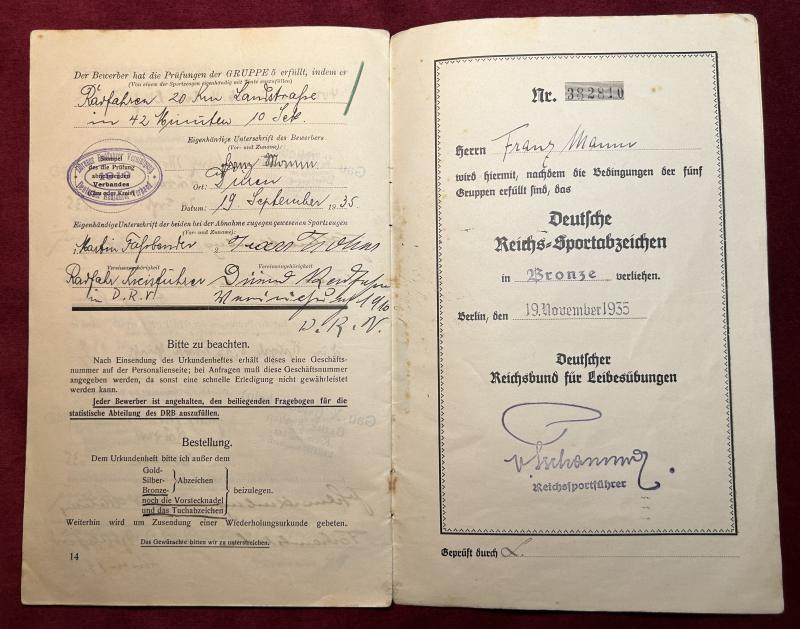 Der Bewerber hat die Prüfungen der GRUPPE 5 erfüllt, indem er
(Von einem der Sportzeugen eigenhändig mit Tinte auszufüllen)
Radfahren 20 Km Landstraße
in 42 Minuten 10 Sek.
Eigenhändige Unterschrift des Bewerbers
(Vor- und Zuname):
Franz Mann
Stempel
des die Prüfung
abnehmenden
Verbandes
(Gau oder Kreis)
Ort: Düren
Datum: 19 September 1935.
Eigenhändige Unterschrift der beiden bei der Abnahme zugegen gewesenen Sportzeugen
(Vor- und Zuname):
1. Martin Fahrbender 2.
Vereinszugehörigkeit Vereinszugehörigkeit
Radfahr Kreisführer
in D.R.V.
1910
D.R.V.
Bitte zu beachten.
Nach Einsendung des Urkundenheftes erhält dieses eine Geschäfts-
nummer auf der Personalienseite; bei Anfragen muß diese Geschäftsnummer
angegeben werden, da sonst eine schnelle Erledigung nicht gewährleistet
werden kann.
Jeder Bewerber ist angehalten, den beiliegenden Fragebogen für die
statistische Abteilung des DRB auszufüllen.
Bestellung.
Dem Urkundenheft bitte ich außer dem
Gold-
Silber-
Bronze-
Abzeichen
noch die Vorstecknadel
und das Tuchabzeichen
beizulegen.
Weiterhin wird um Zusendung einer Wiederholungsurkunde gebeten.
Das Gewünschte bitten wir zu unterstreichen.
14
Nr. 382810
Herrn Franz Mann
wird hiermit, nachdem die Bedingungen der fünf
Gruppen erfüllt sind, das
Deutsche
Reichs-Sportabzeichen
in Bronze verliehen.
Berlin, den 19. November 1935
Deutscher
Reichsbund für Leibesübungen
v. Tschammer
Reichssportführer
Geprüft durch L.